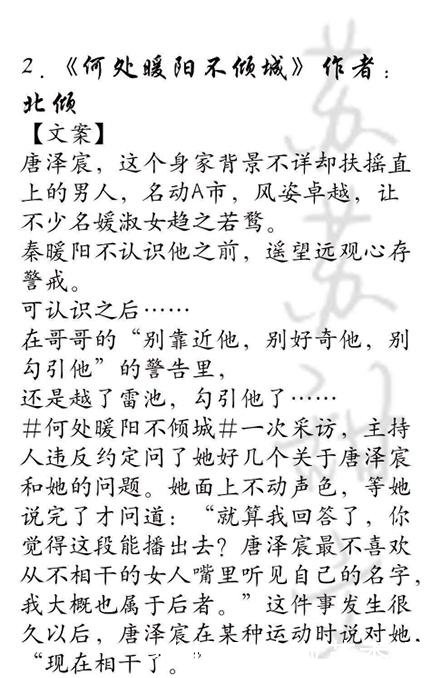 2.《何处暖阳不倾城》作者：
北倾
【文案】
唐泽宸，这个身家背景不详却扶摇直
上的男人，名动A市，风姿卓越，让
不少名媛淑女趋之若鹜。
秦暖阳不认识他之前，遥望远观心存
警戒。
可认识之后……
在哥哥的“别靠近他，别好奇他，别
勾引他”的警告里，
还是越了雷池，勾引他了……
#何处暖阳不倾城#一次采访，主持
人违反约定问了她好几个关于唐泽宸
和她的问题。她面上不动声色，等她
说完了才问道：“就算我回答了，你
觉得这段能播出去？唐泽宸最不喜欢
从不相干的女人嘴里听见自己的名字，
我大概也属于后者。”这件事发生很
久以后，唐泽宸在某种运动时说对她，
“现在相干了。”